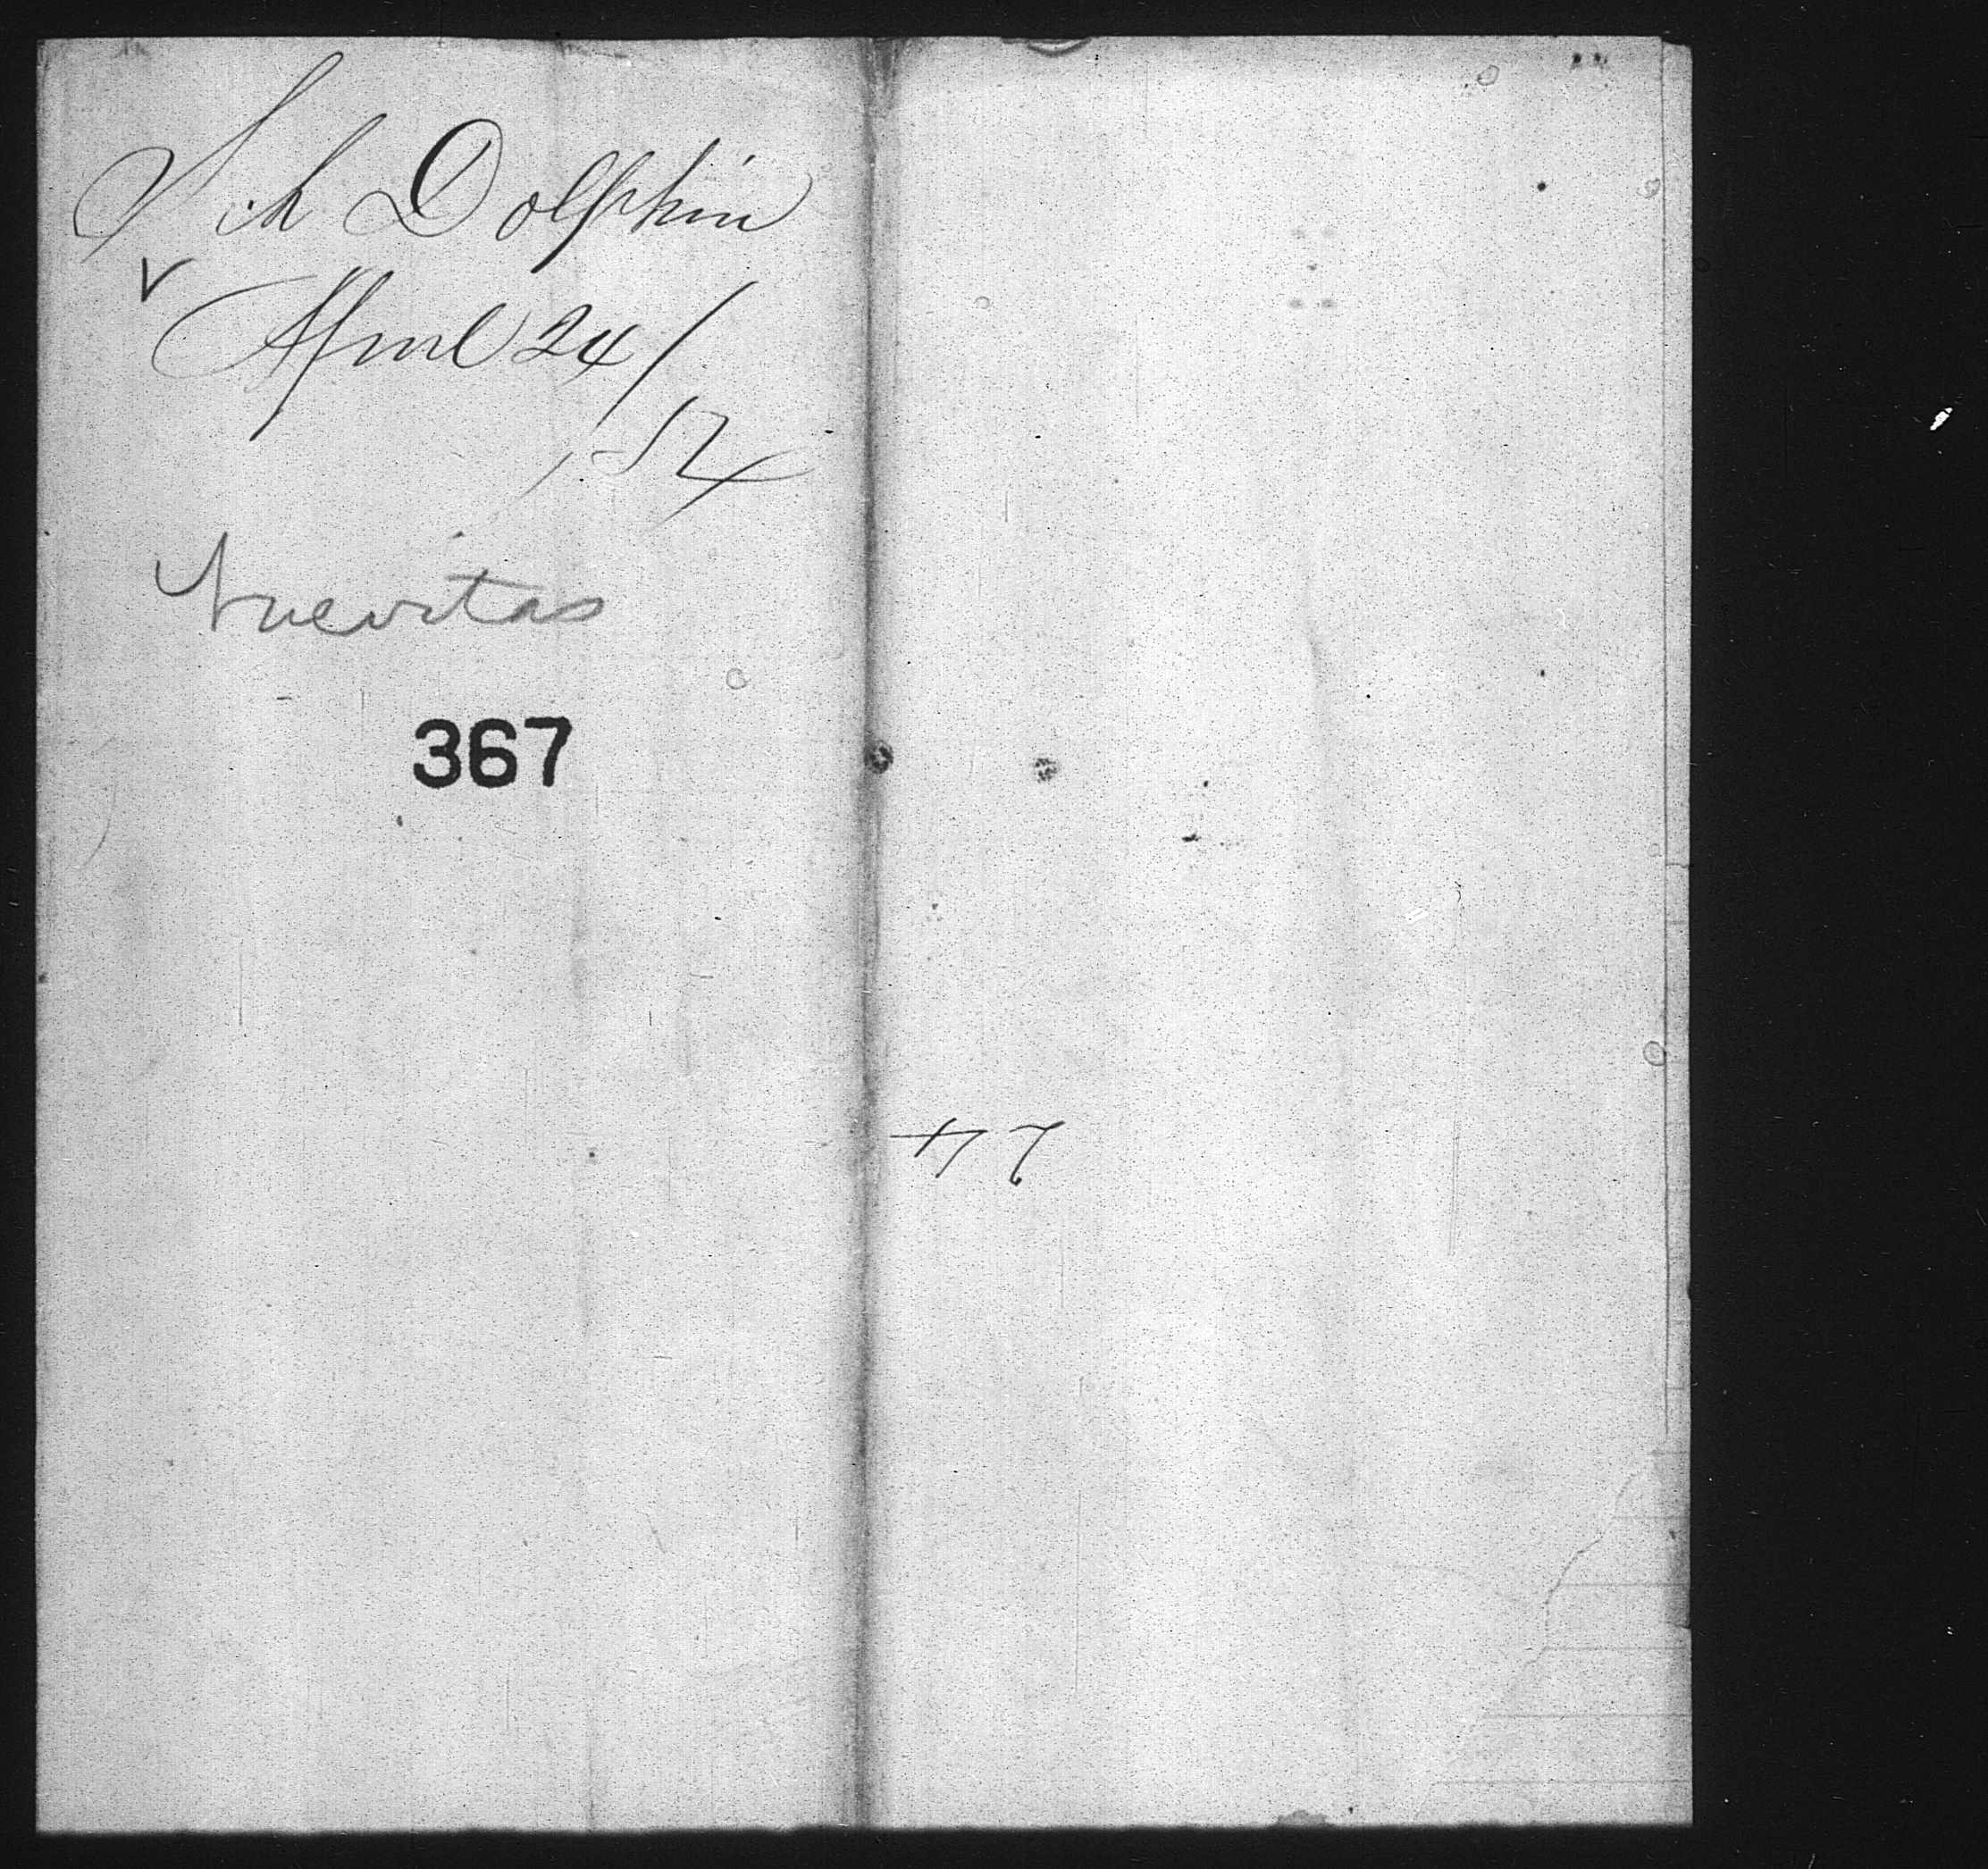 Sch Dolphin
April 24/
52
Nuevitas
367